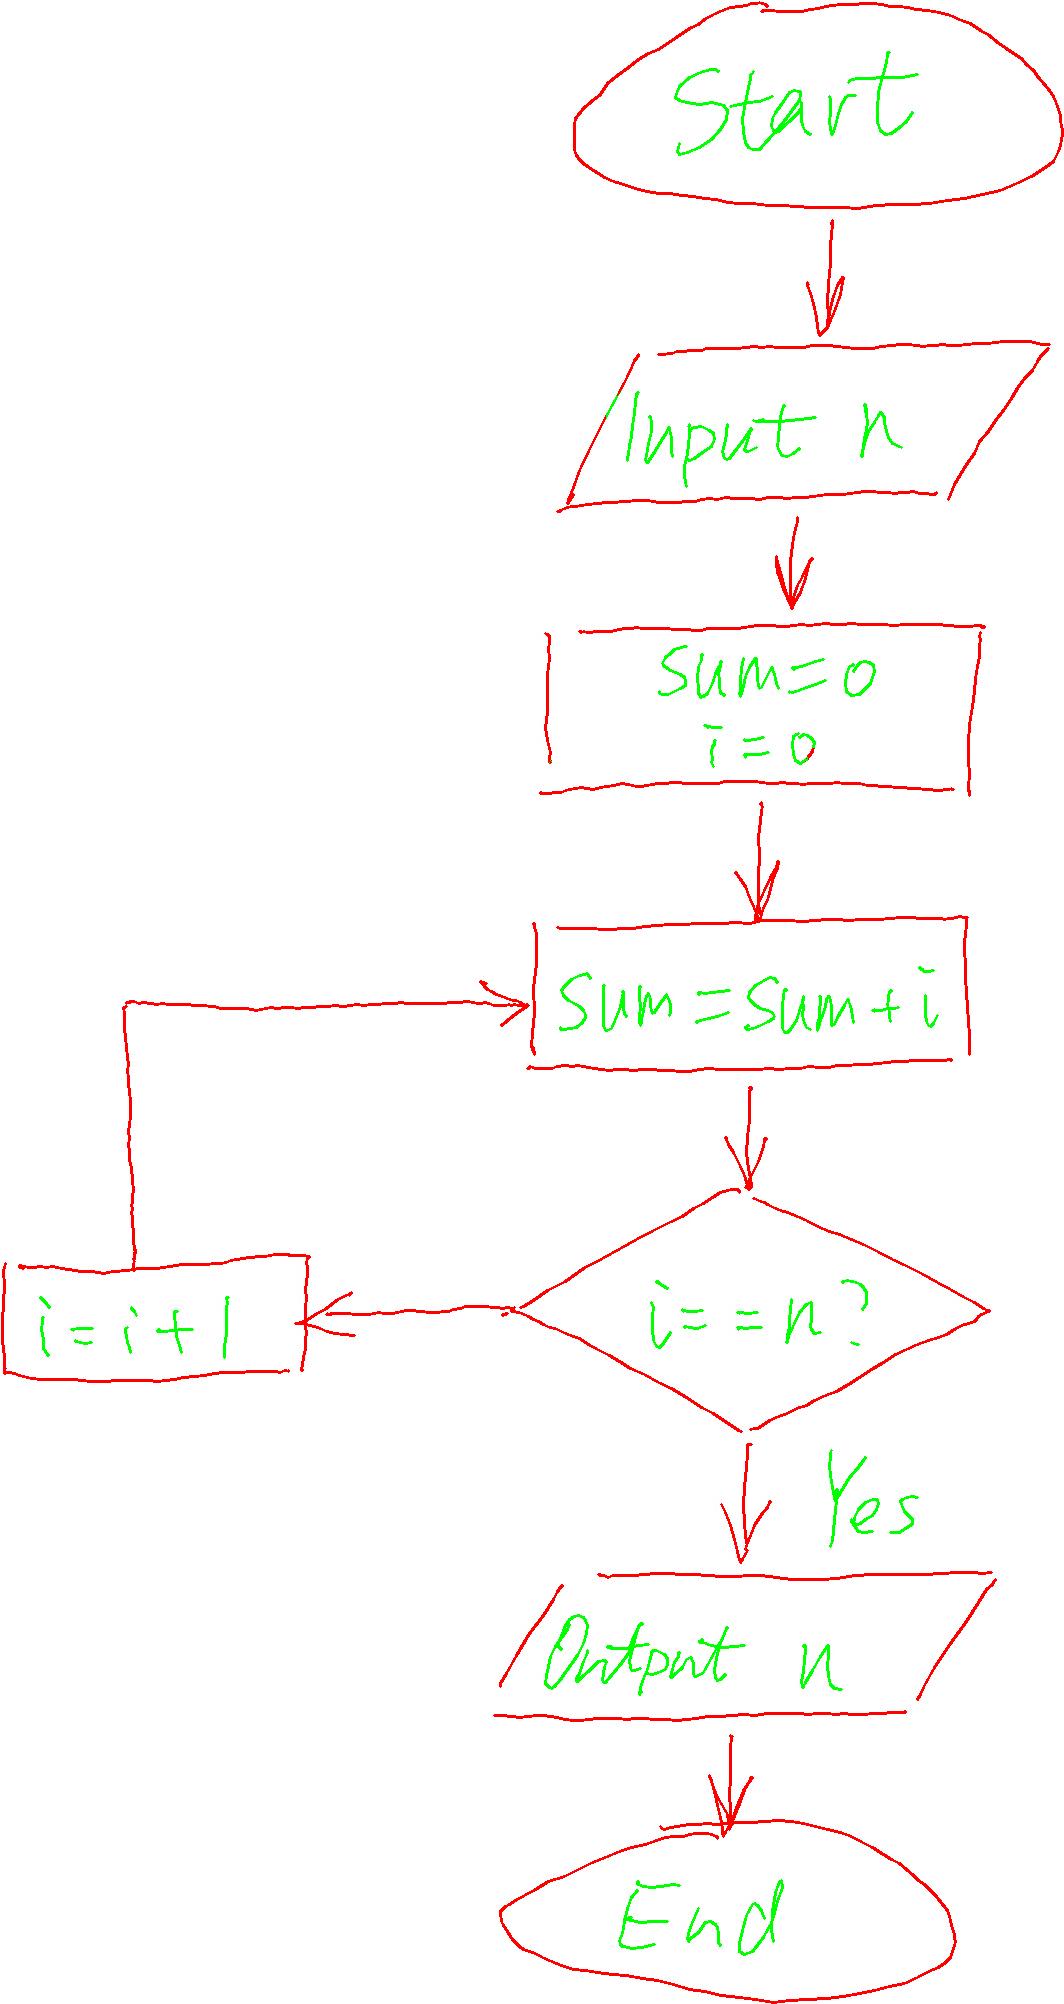 Start
Input n
sum=0
i=0
sum=sum+i
i==n?
i=i+1
Yes
Output n
End